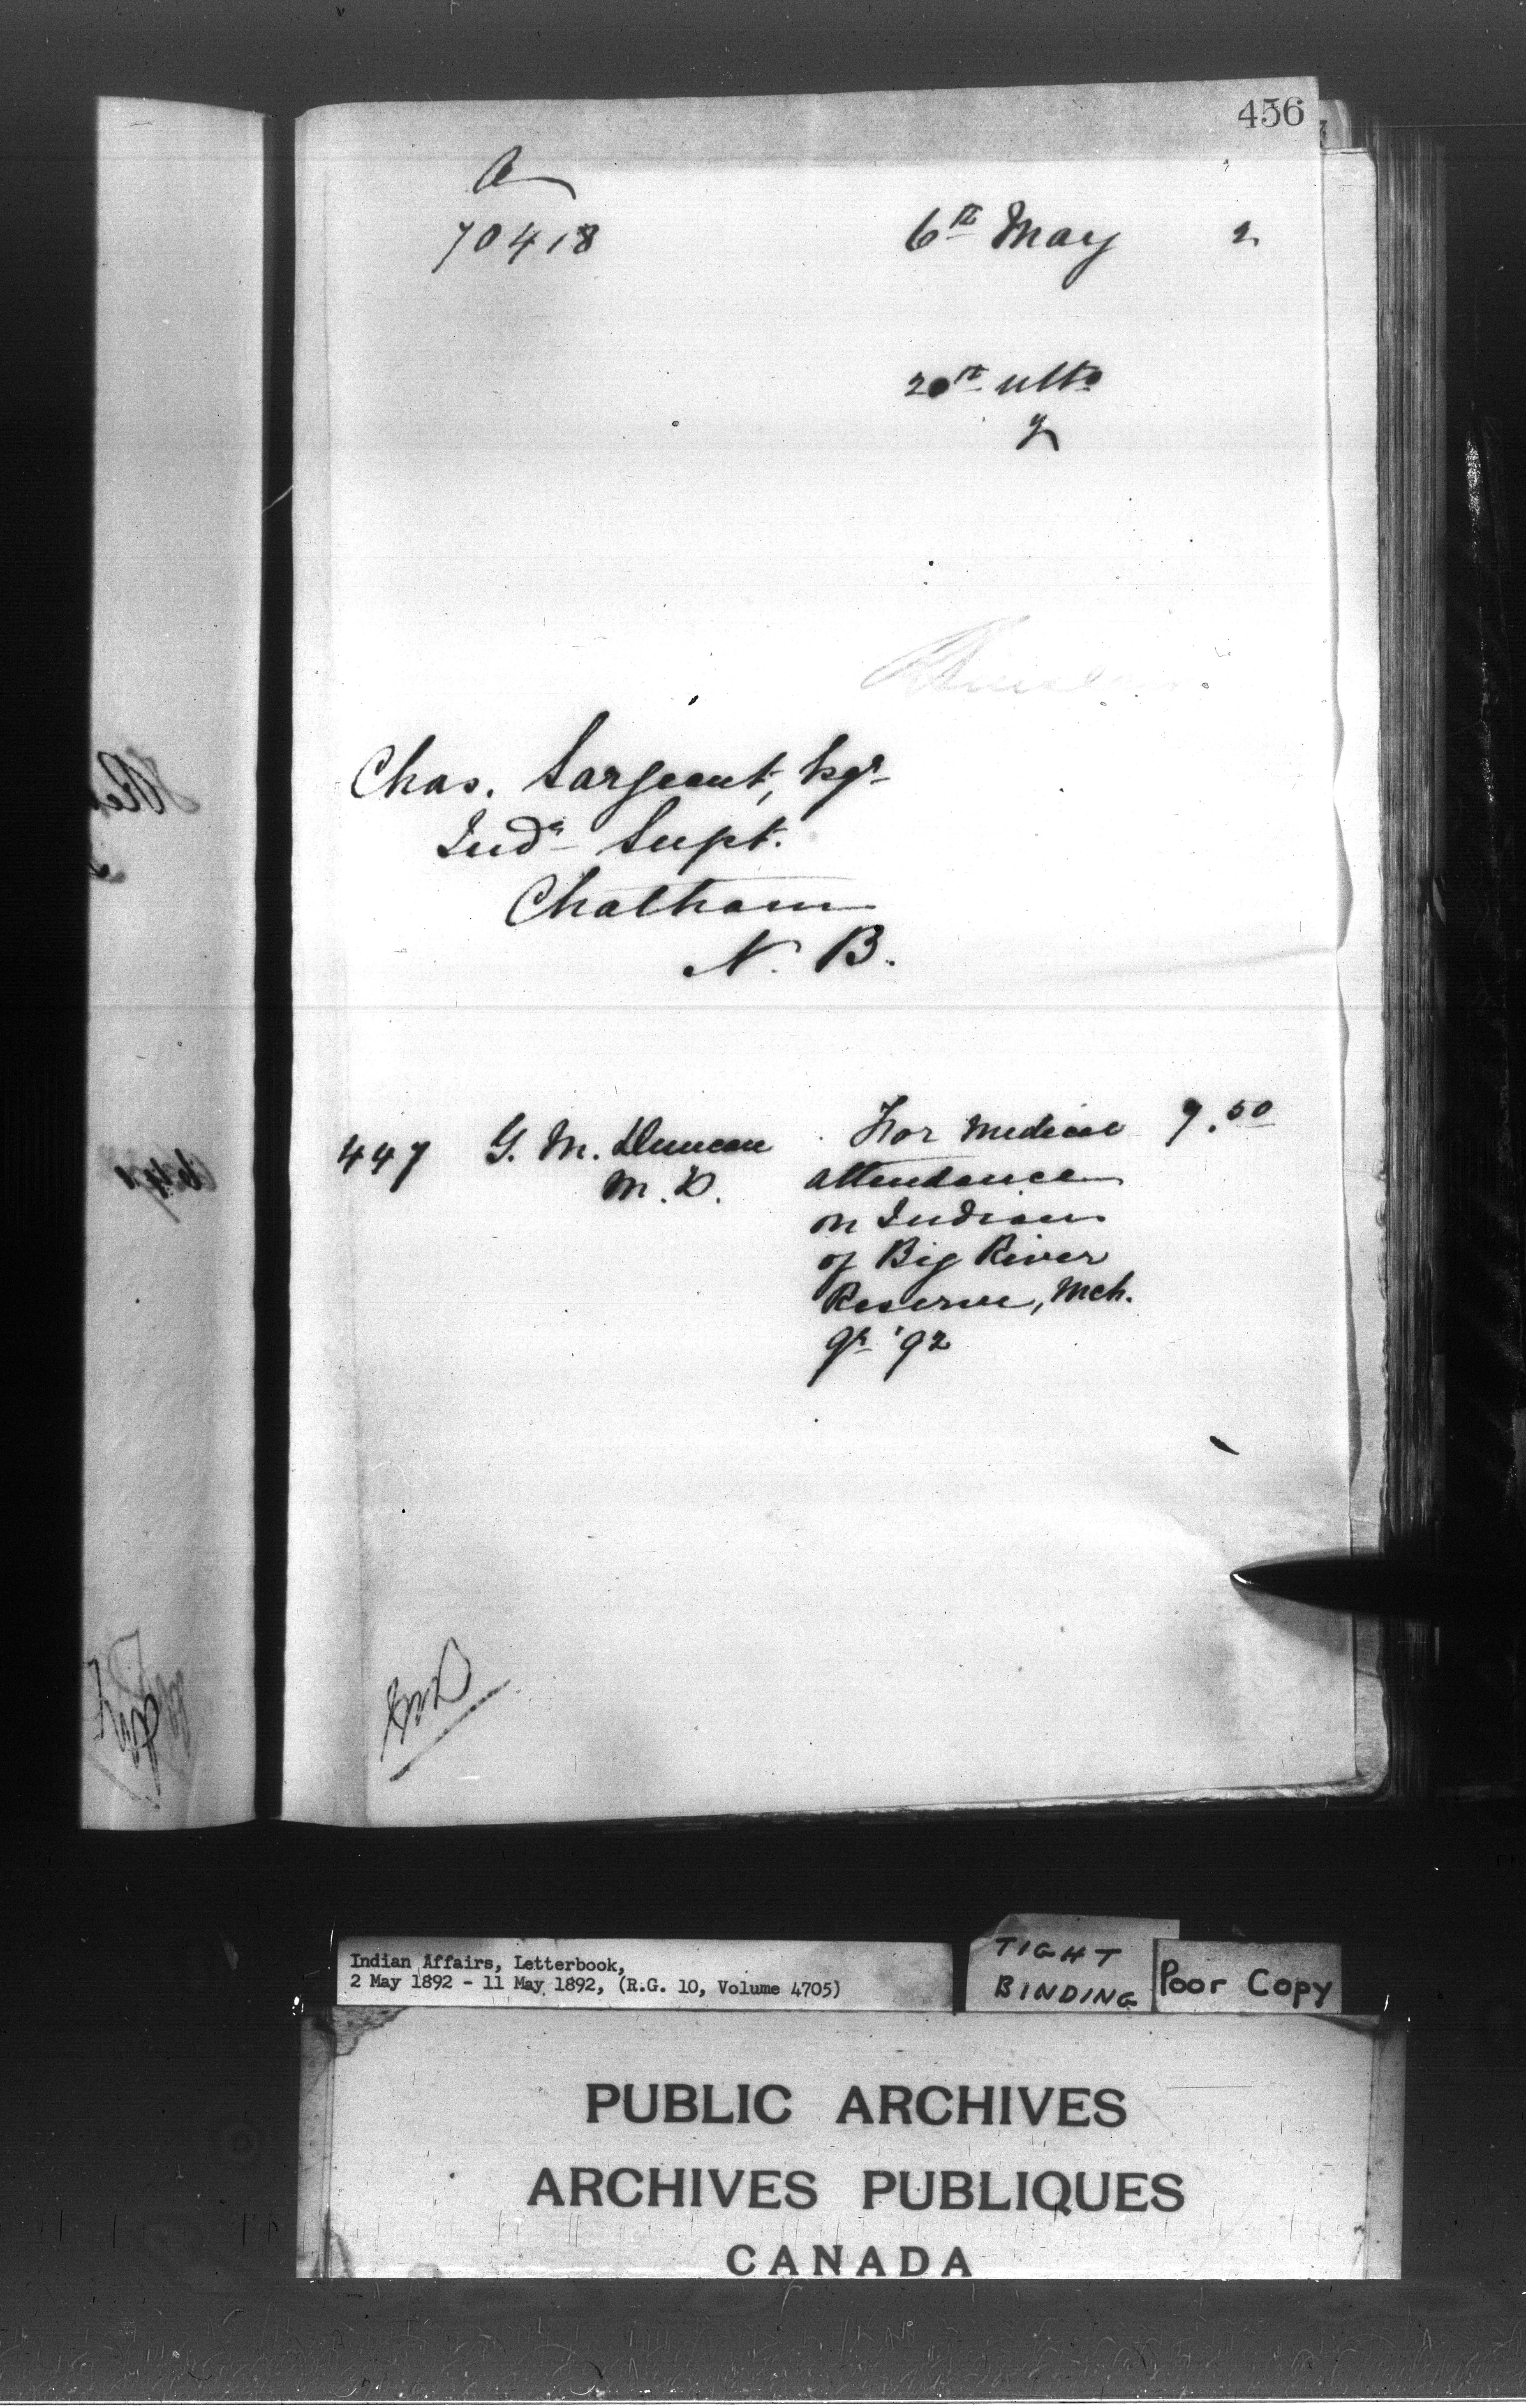 456
70418 6th May 2
20th ulto
2
Chas. Sargeant, Esqr
Indn Supt.
Chatham
N. B.
447 G. M. Duncan For Medical 7.50
M. D. attendance
on Indians
of Big River
Reserve, Mch.
qr '92
Indian Affairs, Letterbook,
2 May 1892 - 11 May 1892, (R.G. 10, Volume 4705)
TIGHT
BINDING
Poor Copy
PUBLIC ARCHIVES
ARCHIVES PUBLIQUES
CANADA